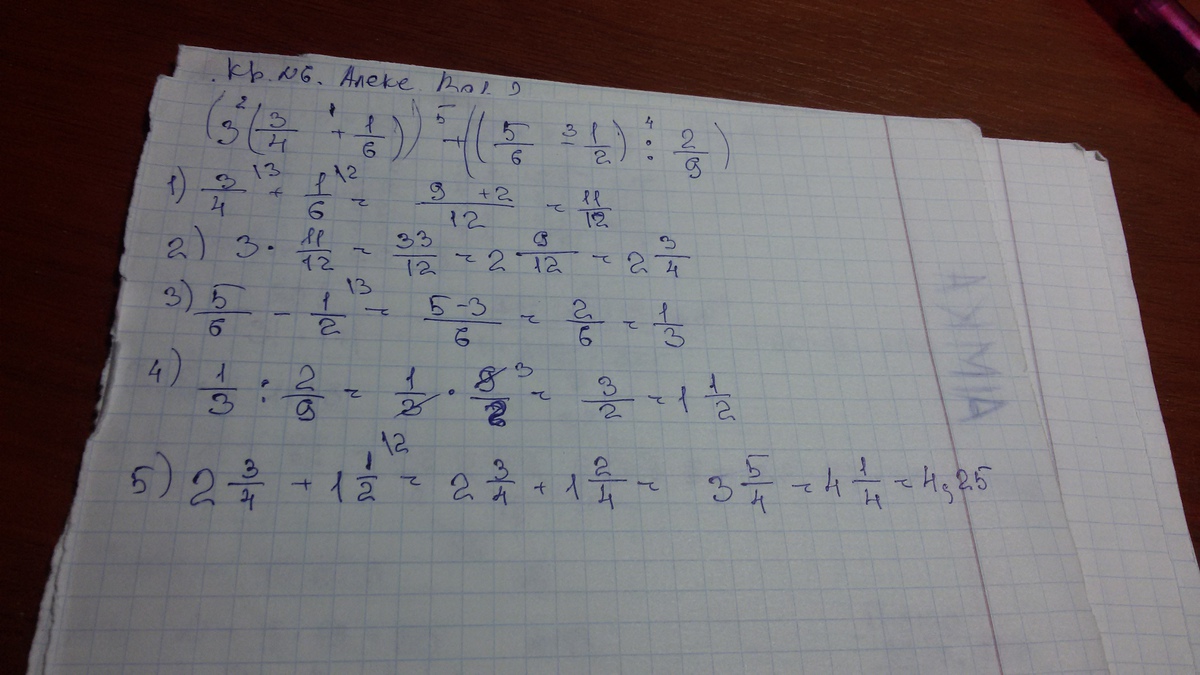 Кр. №6. Алекс.
(3(3/4 + 1/6)) + ((5/6 - 1/2) : 2/9)
1) 3/4 \3 + 1/6 \2 = 9+2/12 = 11/12
2) 3 · 11/12 = 33/12 = 2 9/12 = 2 3/4
3) 5/6 - 1/2 \3 = 5-3/6 = 2/6 = 1/3
4) 1/3 : 2/9 = 1/3 · 9/2 3 = 3/2 = 1 1/2
5) 2 3/4 + 1 1/2 \2 = 2 3/4 + 1 2/4 = 3 5/4 = 4 1/4 = 4,25